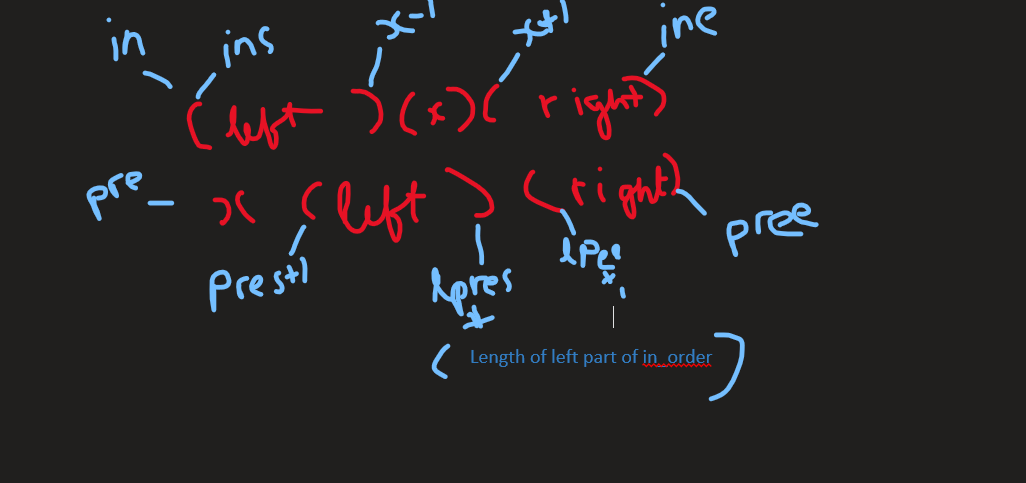 in ins x-1 x+1 ine
(left)(x)(right)
pre - x (left) (right)
pree
pres+1 lpres
(Length of left part of in_order)